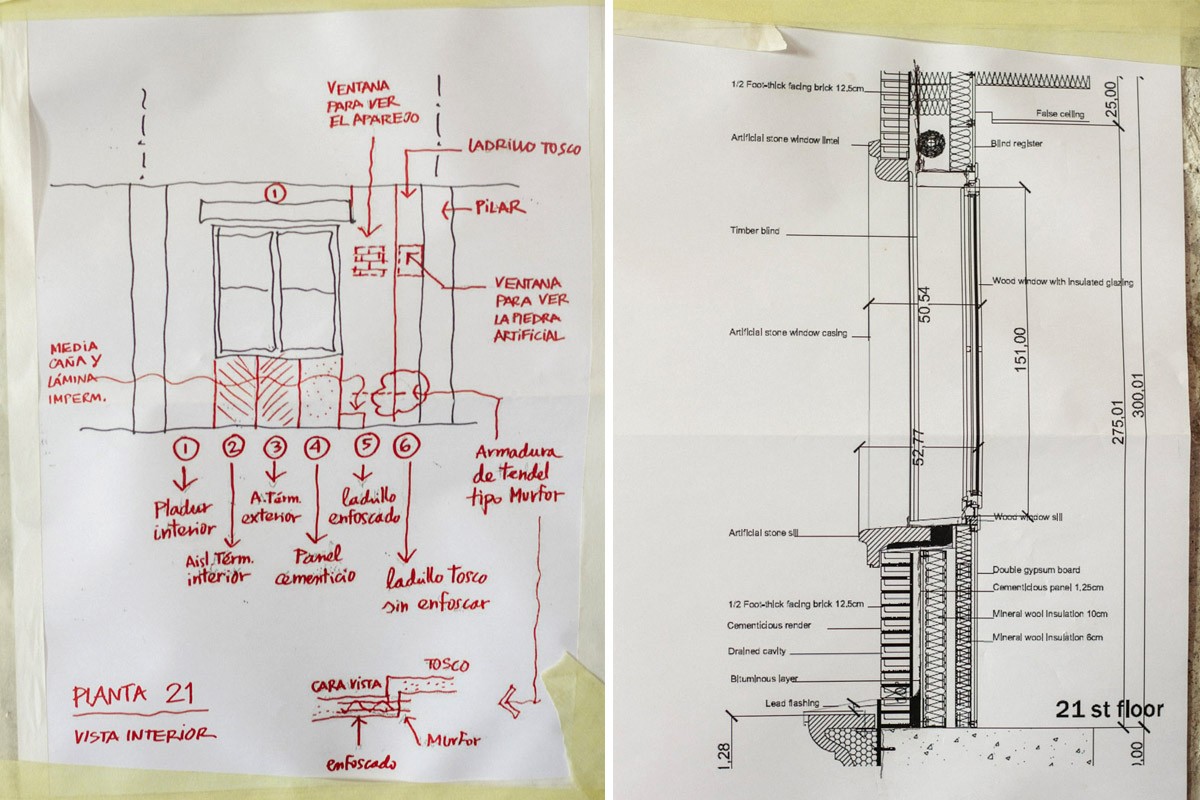 VENTANA
PARA VER
EL APAREJO
LADRILLO TOSCO
①
PILAR
VENTANA
PARA VER
LA PIEDRA
ARTIFICIAL
MEDIA
CAÑA Y
LÁMINA
IMPERM.
① ② ③ ④ ⑤ ⑥
Pladur
interior
Aisl. Térm.
interior
A. Térm.
exterior
Panel
cementicio
ladrillo
enfoscado
ladrillo Tosco
sin enfoscar
Armadura
de tendel
tipo Murfor
PLANTA 21
VISTA INTERIOR
CARA VISTA
TOSCO
Murfor
enfoscado
1/2 Foot-thick facing brick 12.5cm
Artificial stone window lintel
Timber blind
Artificial stone window casing
Artificial stone sill
1/2 Foot-thick facing brick 12.5cm
Cementicious render
Drained cavity
Bituminous layer
Lead flashing
False ceiling
Blind register
Wood window with insulated glazing
Wood window sill
Double gypsum board
Cementicious panel 1,25cm
Mineral wool insulation 10cm
Mineral wool insulation 6cm
25,00
50,54
151,00
52,77
275,01
300,01
10
21 st floor
1,28